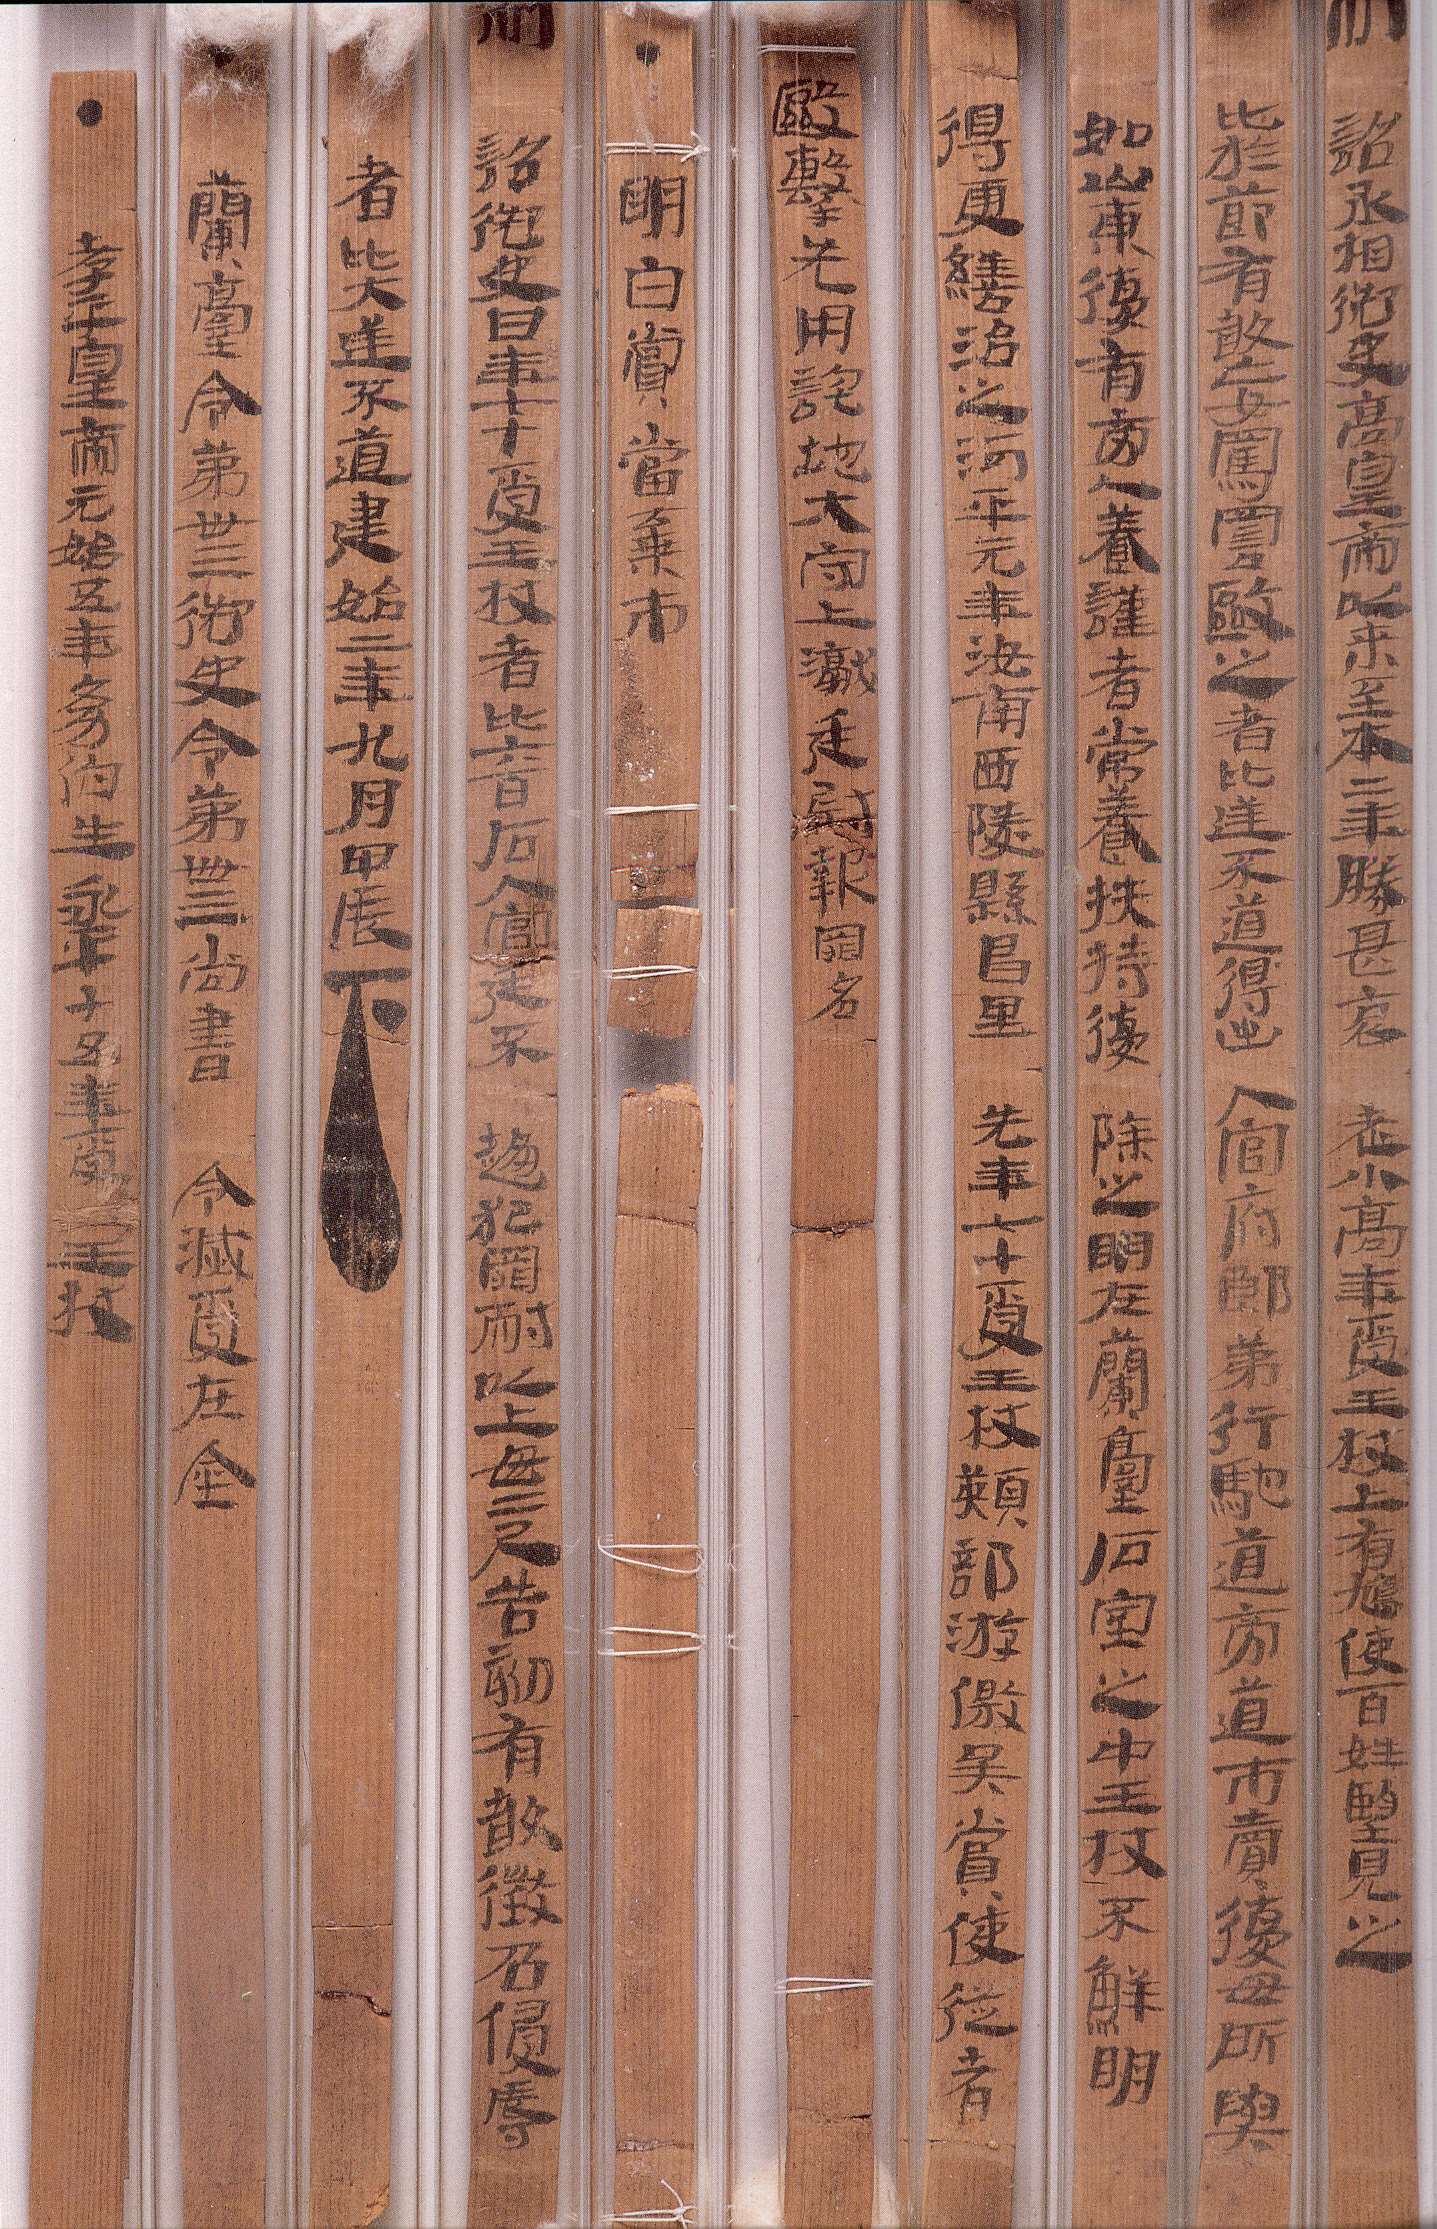 制
詔丞相御史高皇帝以來至本二年勝甚哀老小高年受王杖上有鳩使百姓望見之
比於節有敢妄罵詈毆之者比逆不道得出入官府郎弟行馳道旁道市賣復毋所與
如山東復有旁人養謹者常養扶持復除之明在蘭臺石室之中王杖不鮮明
得更繕治之河平元年汝南西陵縣昌里先年七十受王杖熲部游徼吳賞使從者
毆擊先用詫地大守上讞廷尉報罪名
●明白賞當棄市
制
詔御史曰年七十受王杖者比六百石入官廷不趨犯罪耐以上毋二尺告劾有敢徵召侵辱
者比大逆不道建始二年九月甲辰下
●蘭臺令第卅三御史令第卌三尚書令滅受在金
●孝平皇帝元始五年幼伯生永平十五年受王杖